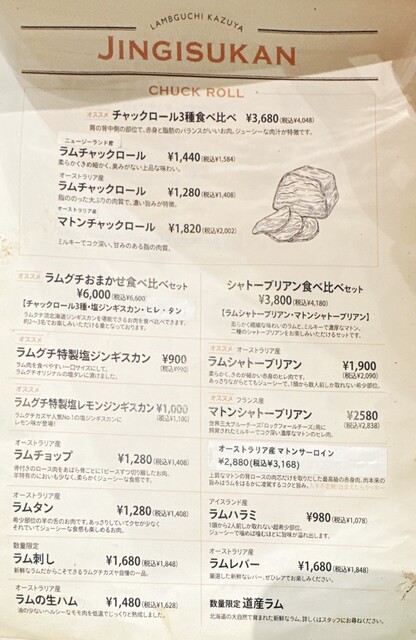 LAMBGUCHI KAZUYA
JINGISUKAN
CHUCK ROLL
オススメ チャックロール3種食べ比べ ¥3,680(税込¥4,048)
肩の背中側の部位で、赤身と脂肪のバランスがいいお肉。ジューシーな肉汁が特徴です。
ニュージーランド産
ラムチャックロール ¥1,440(税込¥1,584)
柔らかくきめ細かく、臭みがない上品な味わい。
オーストラリア産
ラムチャックロール ¥1,280(税込¥1,408)
脂ののった大ぶりの肉質で、濃い旨みが特徴。
オーストラリア産
マトンチャックロール ¥1,820(税込¥2,002)
ミルキーでコク深い、甘みのある脂の肉質。
オススメ
ラムグチおまかせ食べ比べセット
¥6,000(税込¥6,600)
【チャックロール3種・塩ジンギスカン・ヒレ・タン】
ラムグチ流北海道ジンギスカンを堪能できるお肉を食べ比べできます。
約2〜3名でお楽しみいただける量となっております。
オススメ
ラムグチ特製塩ジンギスカン ¥900
(税込¥990)
ラム肉を食べやすい一口サイズにして、
ラムグチオリジナルの塩ダレに漬けました。
オススメ
ラムグチ特製塩レモンジンギスカン ¥1,000
(税込¥1,100)
ラムグチカズヤ人気No.1の塩ジンギスカンに
レモン味が登場!
オーストラリア産
ラムチョップ ¥1,280(税込¥1,408)
骨付きのロース肉をあばら骨ごとに1ピースずつ切り離したお肉。
羊特有のにおいも少なく、柔らかくジューシーな食感です。
オーストラリア産
ラムタン ¥1,280(税込¥1,408)
希少部位の羊の舌のお肉です。あっさりしていてクセが少なく
それでいてジューシーな食感も楽しめるお肉。
数量限定
ラム刺し ¥1,680(税込¥1,848)
新鮮なラムだからこそできるラムグチカズヤ自慢の一品。
オーストラリア産
ラムの生ハム ¥1,480(税込¥1,628)
油の少ないヘルシーなモモ肉を低温でじっくりと熟成しました。
シャトーブリアン食べ比べセット
¥3,800(税込¥4,180)
【ラムシャトーブリアン・マトンシャトーブリアン】
柔らか繊細な味わいのラムと、ミルキーで濃厚なマトン、
二種のシャトーブリアンをお楽しみいただけるセットです。
オススメ オーストラリア産
ラムシャトーブリアン ¥1,900
(税込¥2,090)
柔らかく、きめが細かい赤身のヒレ肉です。
あっさりながらとてもジューシーで、1頭から数人前しか取れない希少部位。
オススメ フランス産
マトンシャトーブリアン ¥2580
(税込¥2,838)
世界三大ブルーチーズ「ロックフォールチーズ」用に
飼育されたミルキーでコク深い濃厚なマトンのヒレ肉。
オーストラリア産 マトンサーロイン
¥2,880(税込¥3,168)
上質なマトンの背ロースの肉芯だけを取りだした最高級の赤身肉。肉本来の
旨みはラムをはるかに凌駕するコクと旨み。
アイスランド産
ラムハラミ ¥980(税込¥1,078)
1頭から2人前しか取れない超希少部位。
ジューシーで噛めば噛むほどに旨味が溢れ出します。
オーストラリア産
ラムレバー ¥1,680(税込¥1,848)
厳選した新鮮なレバー、ぜひレアでお楽しみください。
数量限定 道産ラム
北海道の大自然で育まれた新鮮なラム、詳しくはスタッフにお尋ねください。